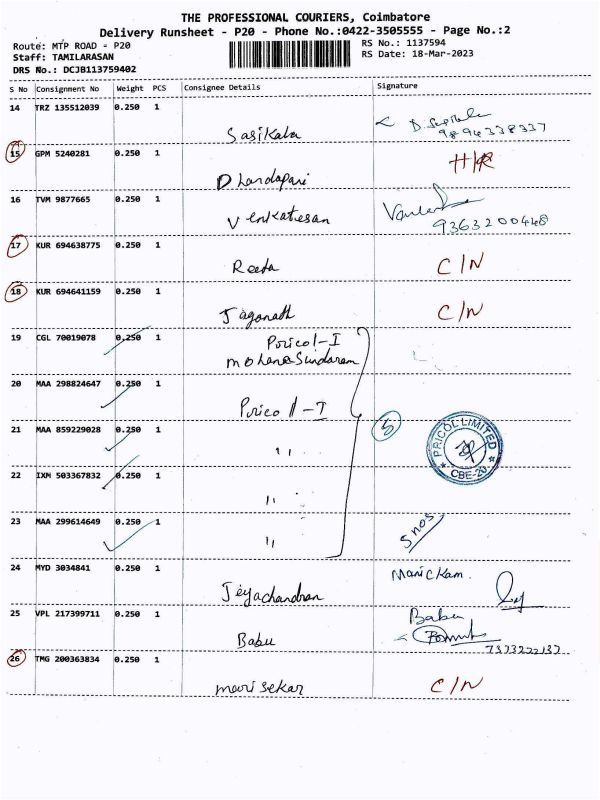 THE PROFESSIONAL COURIERS, Coimbatore
Delivery Runsheet - P20 - Phone No.:0422-3505555 - Page No.:2
Route: MTP ROAD - P20
RS No.: 1137594
Staff: TAMILARASAN
RS Date: 18-Mar-2023
DRS No.: DCJB113759402
S No Consignment No Weight PCS Consignee Details Signature
14 TRZ 135512039 0.250 1
Sasikala
9894338337
15 GPM 5240281 0.250 1
Dhandapani
16 TVM 9877665 0.250 1
Venkatesan
9363200448
17 KUR 694638775 0.250 1
Reeta C/N
18 KUR 694641159 0.250 1
Jaganath C/N
19 CGL 70019078 0.250 1
Pricol-I
Mohana Sundaram
20 MAA 298824647 0.250 1
Pricol-I
21 MAA 859229028 0.250 1
"
5
PRICOL LIMITED
CBE-20
22 IXM 503367832 0.250 1
"
23 MAA 299614649 0.250 1
"
5nos
24 MYD 3034841 0.250 1
Jeyachandran
Manickam
25 VPL 217399711 0.250 1
Babu
Babu
7373222137
26 TMG 200363834 0.250 1
Marisekar C/N